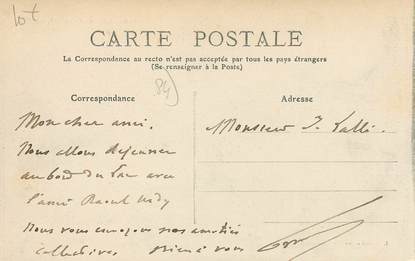 lot
CARTE POSTALE
La Correspondance au recto n'est pas acceptée par tous les pays étrangers
(Se renseigner à la Poste)
84
Correspondance
Adresse
Mon cher ami.
Monsieur
Nous allons déjeuner
au bord du Lac avec
l'ami Raoul
Nous vous envoyons nos amitiés
collectives. Bien à vous